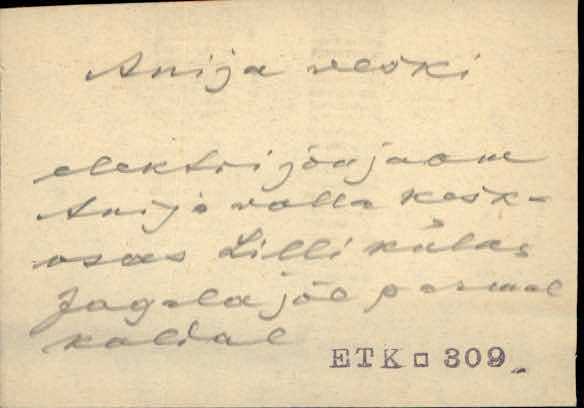 Anija veski
elektrijõujaam
Anija valla kesk-
osas Lilli külas
Jägala jõe paremal
kaldal
ETK □ 309